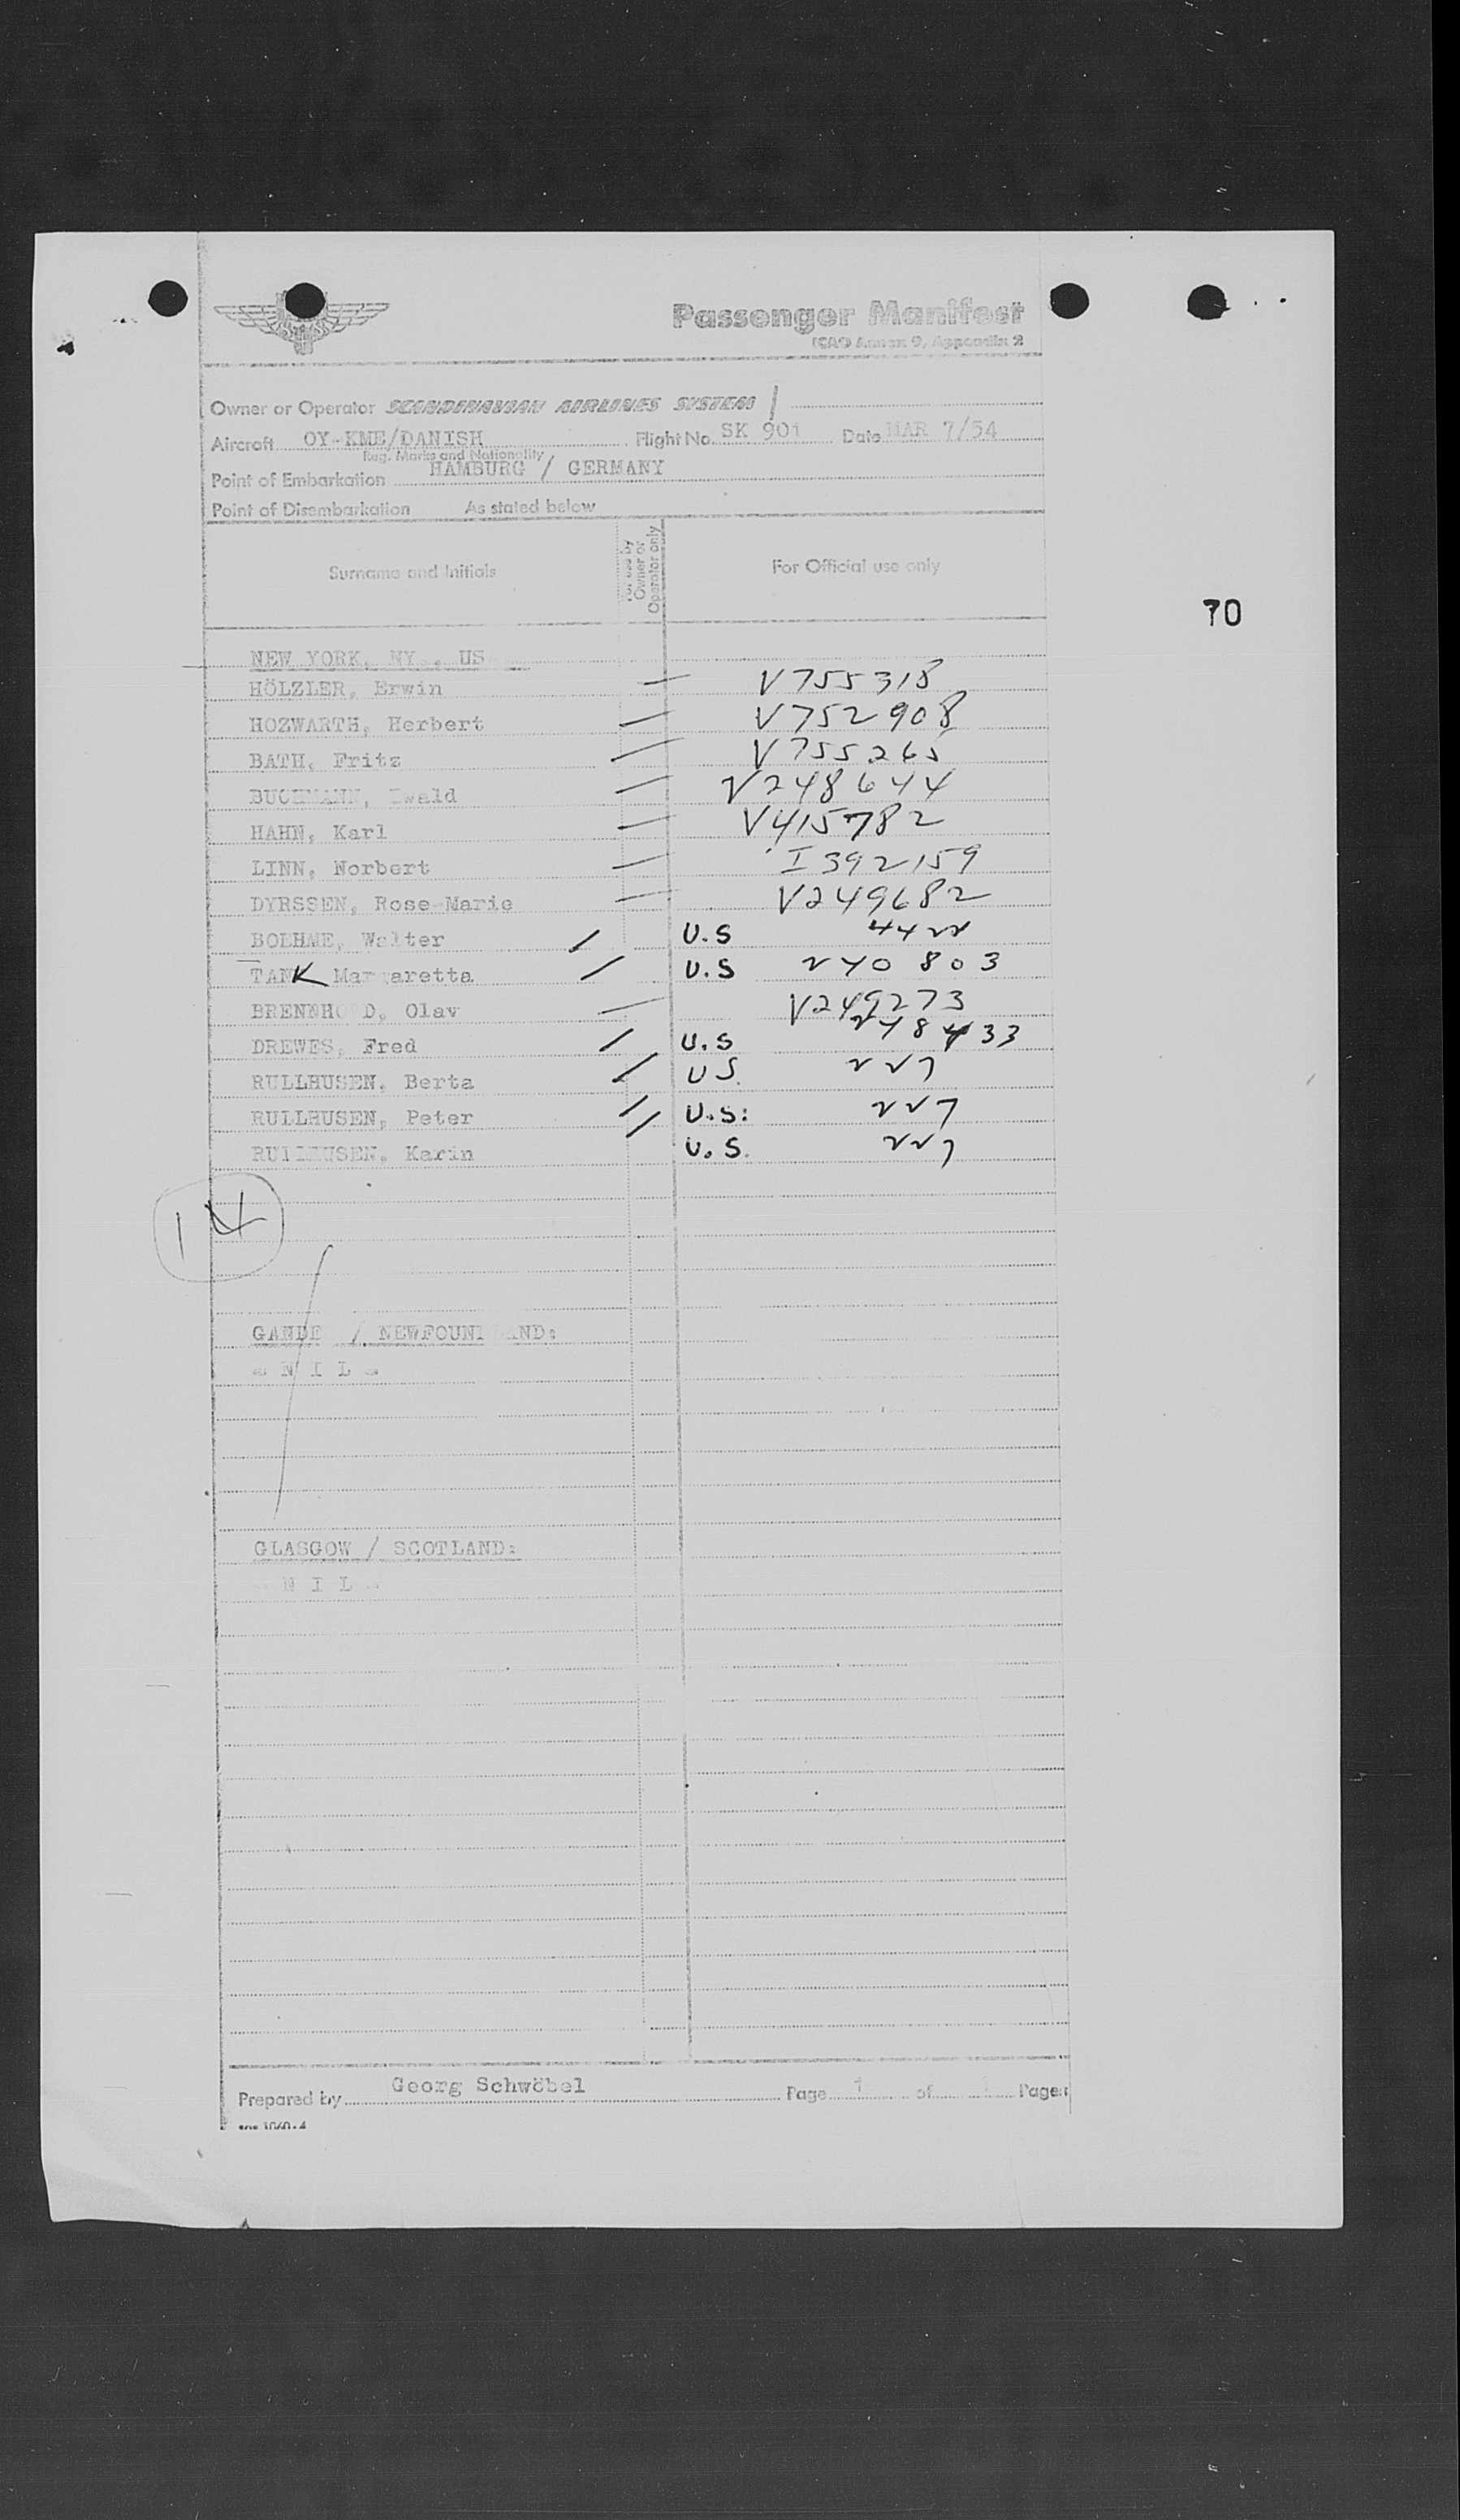 Passenger Manifest
ICAO Annex 9, Appendix 2
Owner or Operator SCANDINAVIAN AIRLINES SYSTEM
Aircraft OY-KME/DANISH Flight No. SK 901 Date MAR 7/54
Reg. Marks and Nationality
Point of Embarkation HAMBURG / GERMANY
Point of Disembarkation As stated below
Surname and Initials
For use by Owner or Operator only
For Official use only
70
NEW YORK, NY., US
HÖLZLER, Erwin — V755318
HOZWARTH, Herbert — V752908
BATH, Fritz — V755265
BUCHMANN, Ewald — V248644
HAHN, Karl — V415782
LINN, Norbert — I392159
DYRSSEN, Rose-Marie — V249682
BOEHME, Walter / U.S 4422
TANK Margaretta / U.S 240803
BRENNHOVD, Olav — V249273
DREWES, Fred / U.S 248433
RULLHUSEN, Berta / US. 227
RULLHUSEN, Peter / U.S: 227
RULLHUSEN, Karin / U.S. 227
14
GANDER / NEWFOUNDLAND:
- N I L -
GLASGOW / SCOTLAND:
- N I L -
Prepared by Georg Schwöbel Page 1 of 1 Pages